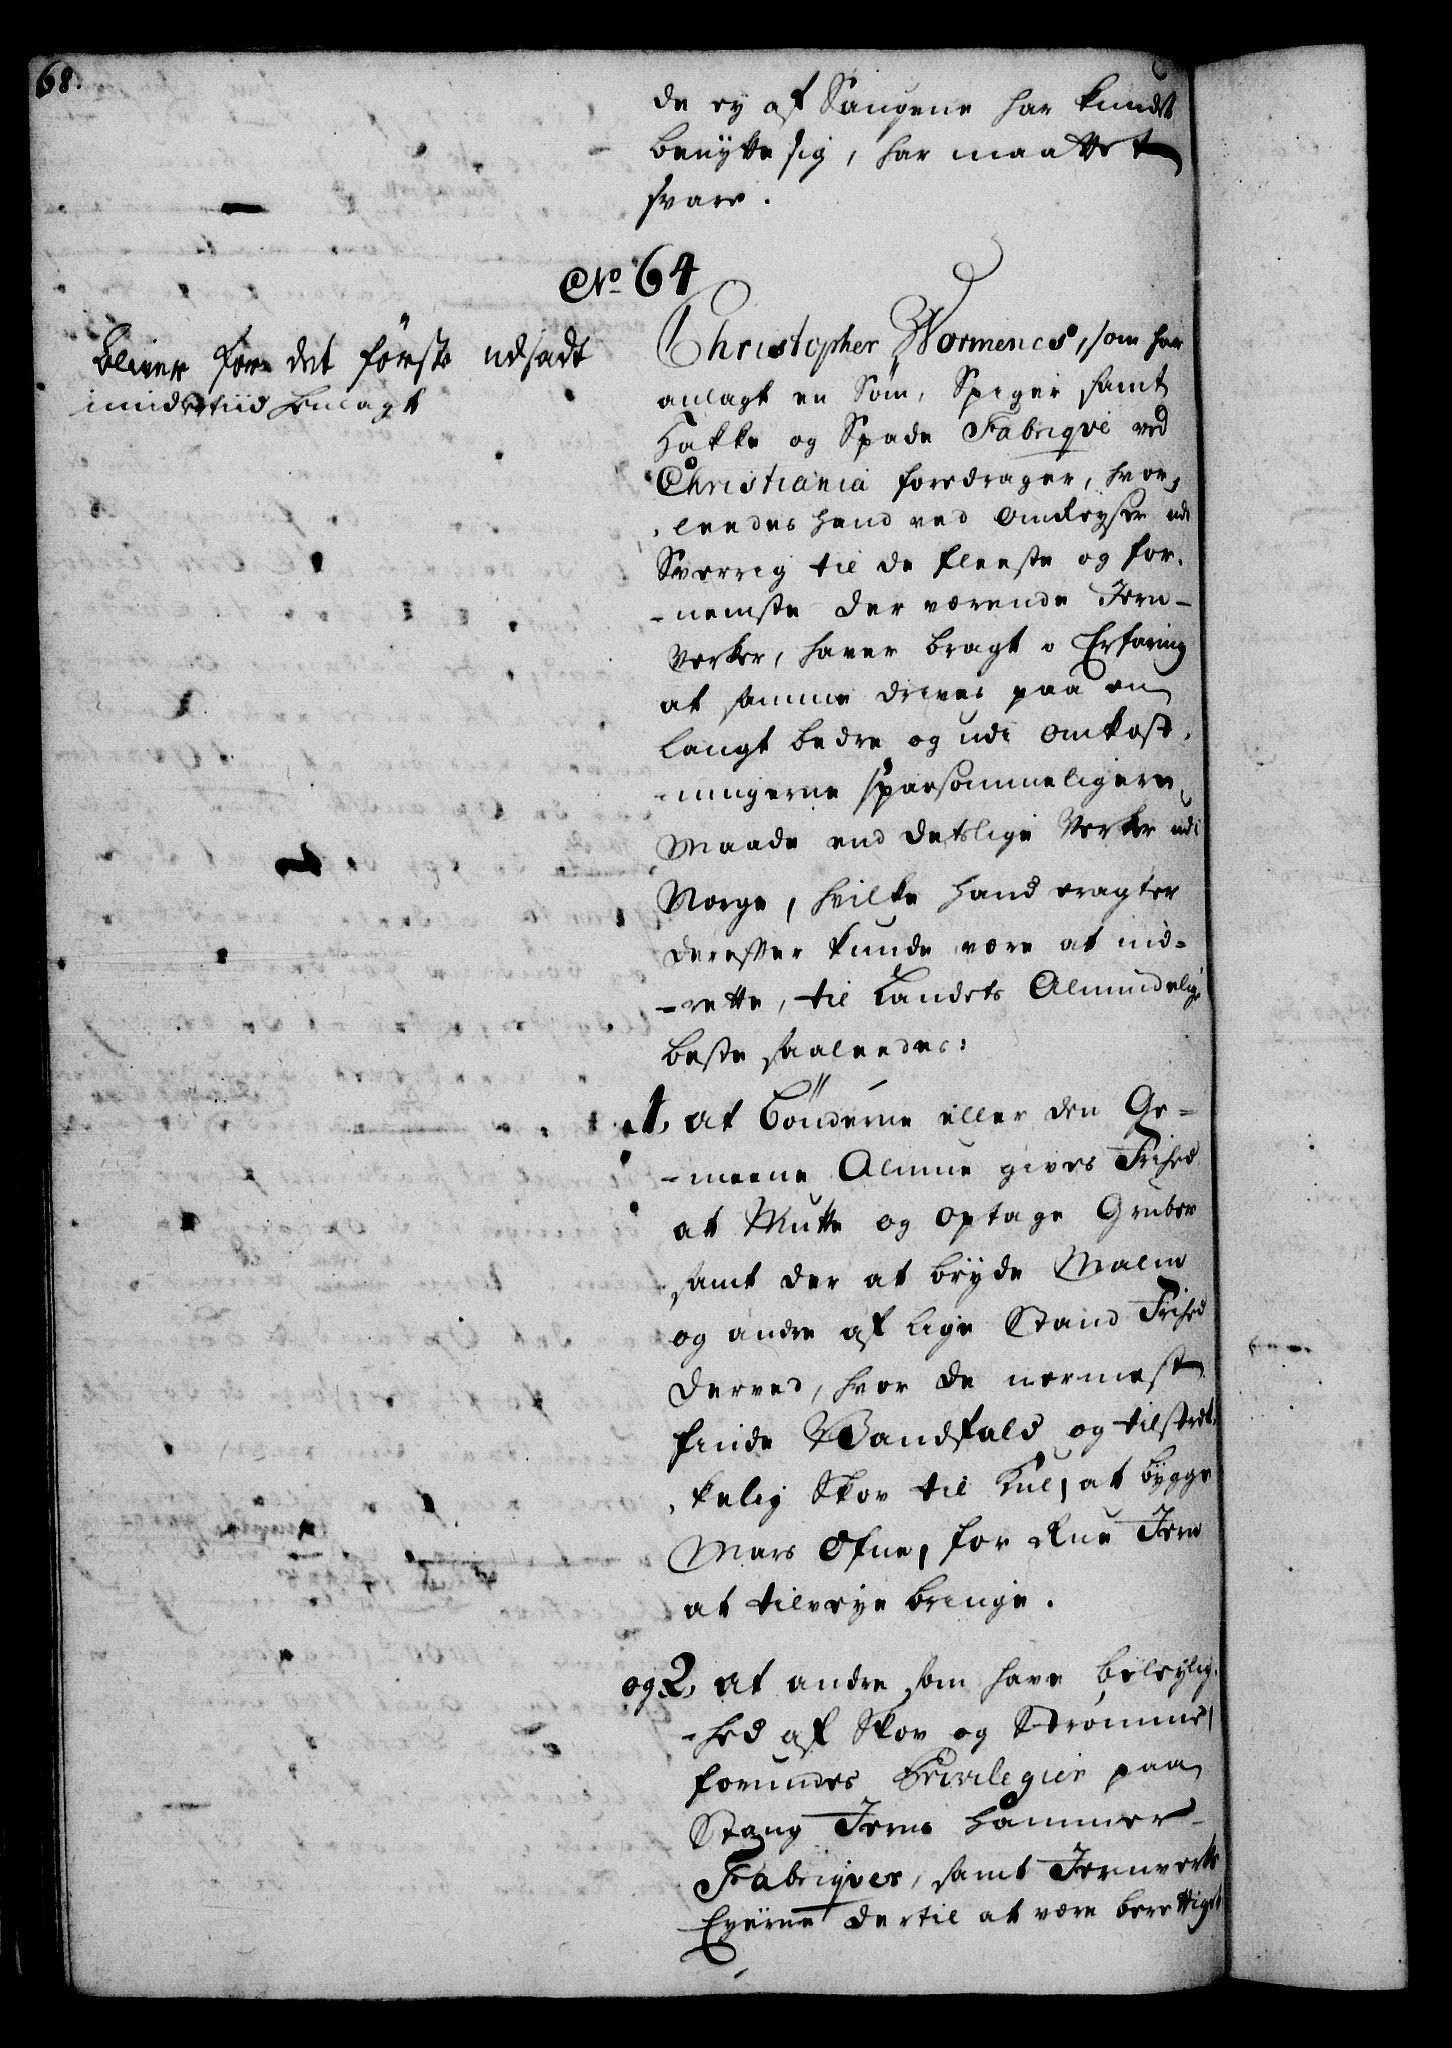 68.
de ey af Saugene har kundet
benytte sig, har maattet
svare.
No 64
Bliver for det første udsadt
imidlertiid henlagt
Christopher Wormencs, som har
anlagt en Søm, Spiger samt
Hakke og Spade Fabriqve ved
Christiania foredrager, hvor,
,leedes hand ved Omreyser udi
Sverrig til de fleeste og for,
-nemste der værende Jern-
Verker, haver bragt i Erfaring
at samme drives paa en
langt bedre og udi Omkost,
-ningerne sparsommeligere
Maade end deslige Verker udi
Norge, hvilke hand eragter
derefter kunde være at ind-
-rette, til Landets Almindelige
beste saaleedes:
1, at Bønderne eller den Ge-
-meene Almue gives Friheed
at Mutte og optage Gruber
samt der at bryde Malm
og andre af lige Stand Friheed
derved, hvor de nermest
finde Vandfald og tilstrek,
,kelig Skov til Kul, at bygge
Mars Ofne, for Rue Jern
at tilveye bringe.
og 2, at andre som have beleylig,
-hed af Skov og Strømme,
forundes Privilegier paa
Stang Jerns Hammer-
Fabriqver, samt Jernverks
Eyerne dertil at være berettiget